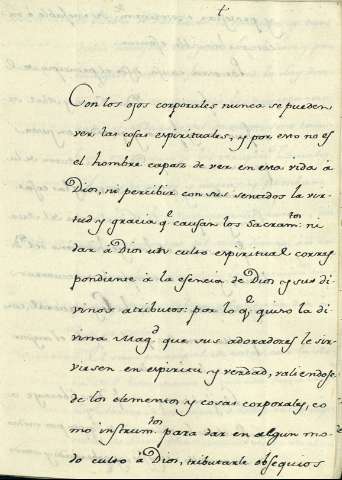 t
Con los ojos corporales nunca se pueden
ver las cosas espirituales, y por esto no es
el hombre capaz de ver en esta vida à
Dios, ni percibir con sus sentidos la vir-
tud y gracia q.^e causan los Sacram.^tos ni
dar à Dios un culto espiritual corres
pondiente à la esencia de Dios y sus di
vinos atributos: por lo q.^e quiso la di
vina Mag.^d que sus adoradores le sir
viesen en espiritu y verdad, valiendose
de los elementos y cosas corporales, co
mo instrum.^tos para dar en algun mo
do culto à Dios, tributarle obsequios